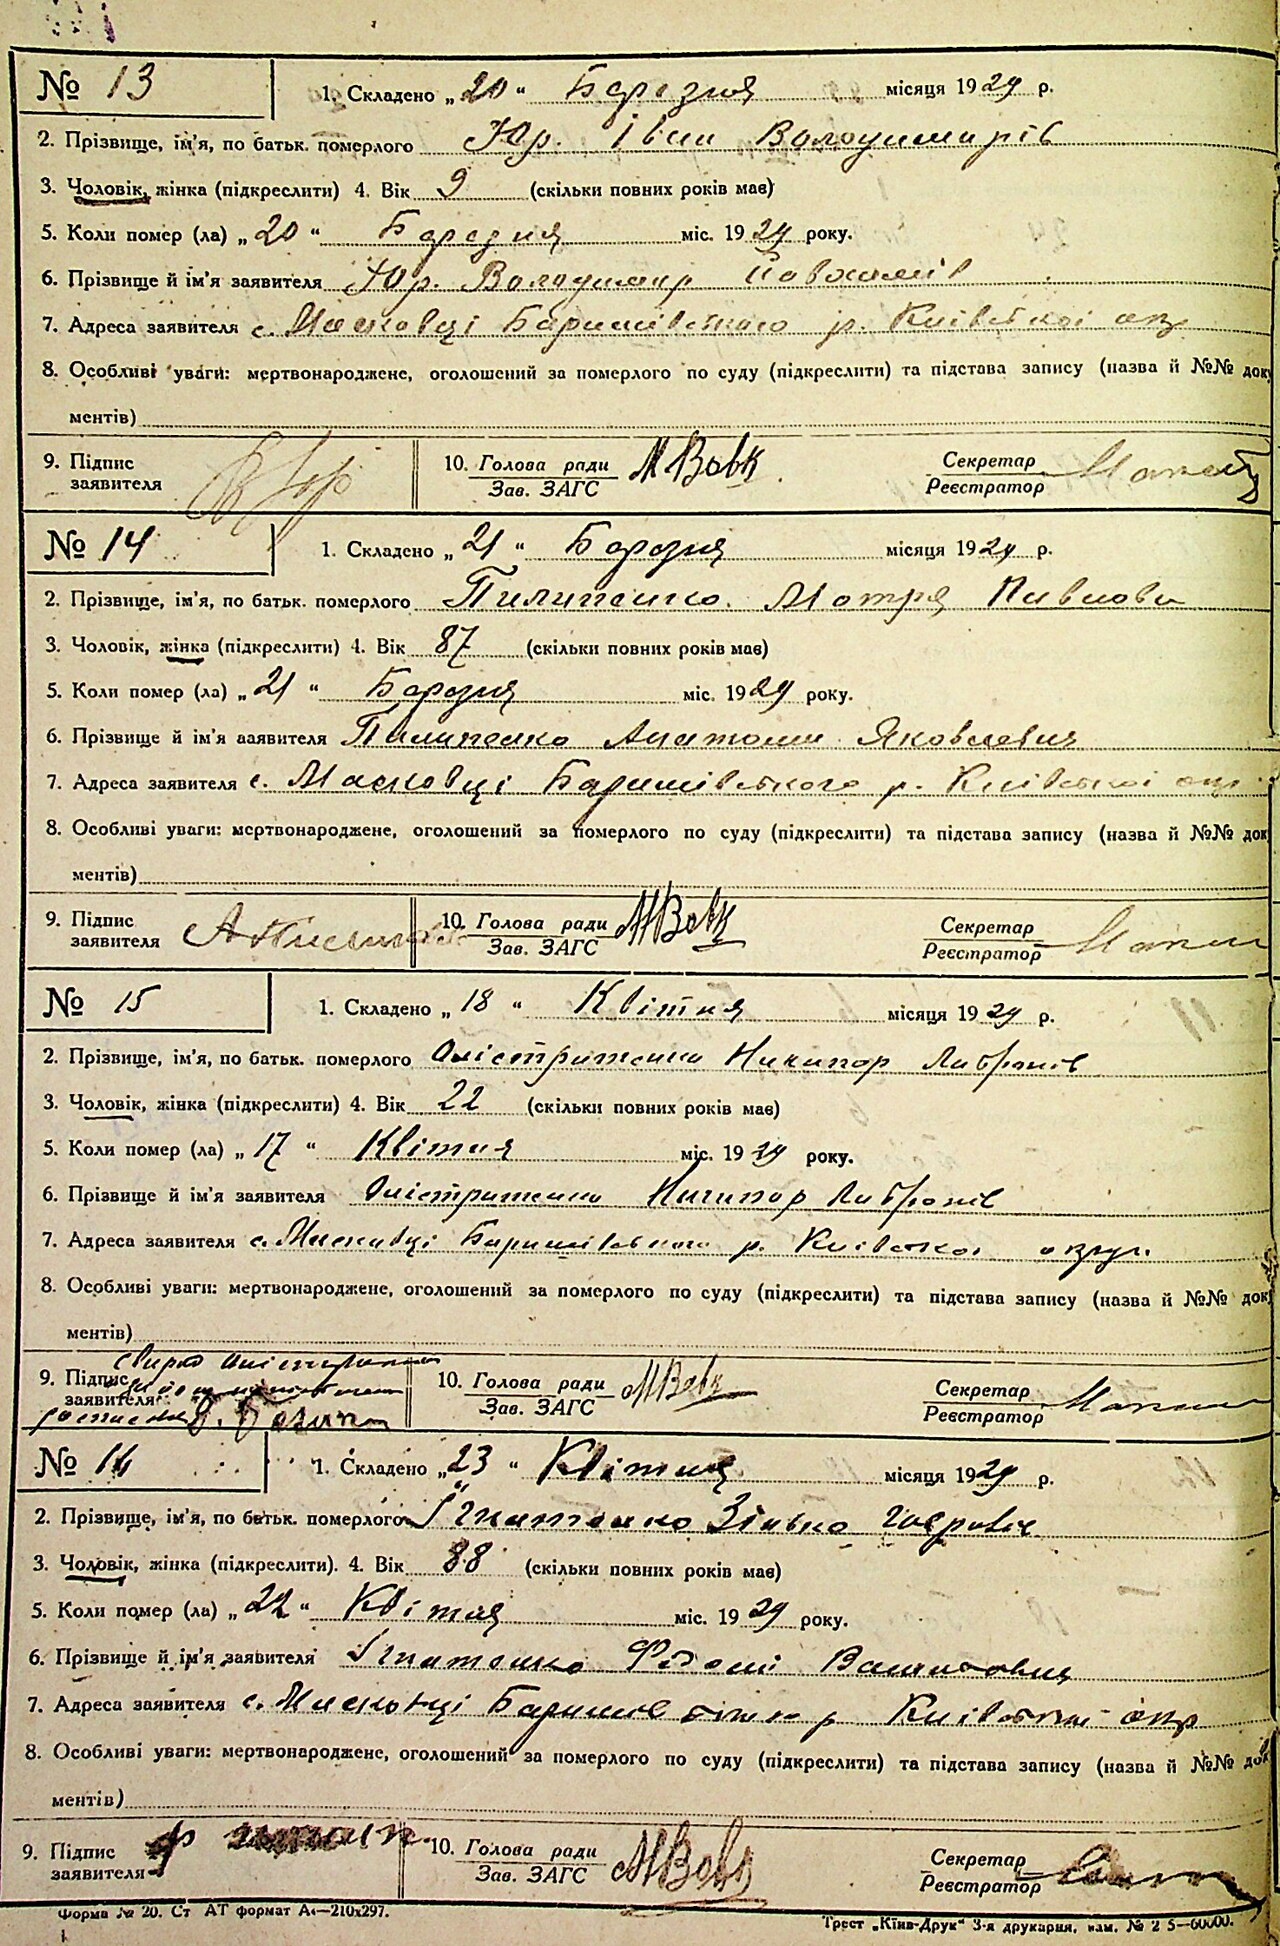 № 13 1. Складено „20“ Березня місяця 1929 р.
2. Прізвище, ім'я, по батьк. померлого Юр. Іван Володимирів
3. Чоловік, жінка (підкреслити) 4. Вік 9 (скільки повних років має)
5. Коли помер (ла) „20“ Березня міс. 1929 року.
6. Прізвище й ім'я заявителя Юр. Володимир
7. Адреса заявителя с. Масковці Баришівського р. Київської окр
8. Особливі уваги: мертвонароджене, оголошений за померлого по суду (підкреслити) та підстава запису (назва й №№ доку
ментів)
9. Підпис заявителя В Юр 10. Голова ради М Вовк Секретар
Зав. ЗАГС Реєстратор
№ 14 1. Складено „21“ Березня місяця 1929 р.
2. Прізвище, ім'я, по батьк. померлого Пилипенко Мотря Павлова
3. Чоловік, жінка (підкреслити) 4. Вік 87 (скільки повних років має)
5. Коли помер (ла) „21“ Березня міс. 1929 року.
6. Прізвище й ім'я заявителя Пилипенко Анатолій Яковлевич
7. Адреса заявителя с. Масковці Баришівського р. Київської окр
8. Особливі уваги: мертвонароджене, оголошений за померлого по суду (підкреслити) та підстава запису (назва й №№ док
ментів)
9. Підпис заявителя 10. Голова ради МВовк Секретар
Зав. ЗАГС Реєстратор
№ 15 1. Складено „18“ Квітня місяця 1929 р.
2. Прізвище, ім'я, по батьк. померлого Никипор
3. Чоловік, жінка (підкреслити) 4. Вік 22 (скільки повних років має)
5. Коли помер (ла) „17“ Квітня міс. 1929 року.
6. Прізвище й ім'я заявителя Ничипор
7. Адреса заявителя с. Масківці Баришівського р. Київської округ.
8. Особливі уваги: мертвонароджене, оголошений за померлого по суду (підкреслити) та підстава запису (назва й №№ док
ментів)
9. Підпис заявителя 10. Голова ради МВовк Секретар
Зав. ЗАГС Реєстратор
№ 16 1. Складено „23“ Квітня місяця 1929 р.
2. Прізвище, ім'я, по батьк. померлого Ігнатенко Зінько
3. Чоловік, жінка (підкреслити). 4. Вік 88 (скільки повних років має)
5. Коли помер (ла) „22“ Квітня міс. 1929 року.
6. Прізвище й ім'я заявителя Ігнатенко
7. Адреса заявителя с. Масковці Баришівського р Київської окр
8. Особливі уваги: мертвонароджене, оголошений за померлого по суду (підкреслити) та підстава запису (назва й №№ док
ментів)
9. Підпис заявителя 10. Голова ради МВовк Секретар
Зав. ЗАГС Реєстратор
Форма № 20. Ст АТ формат А4—210х297. Трест „Київ-Друк“ 3-я друкарня, зам. № 2 5—60000.